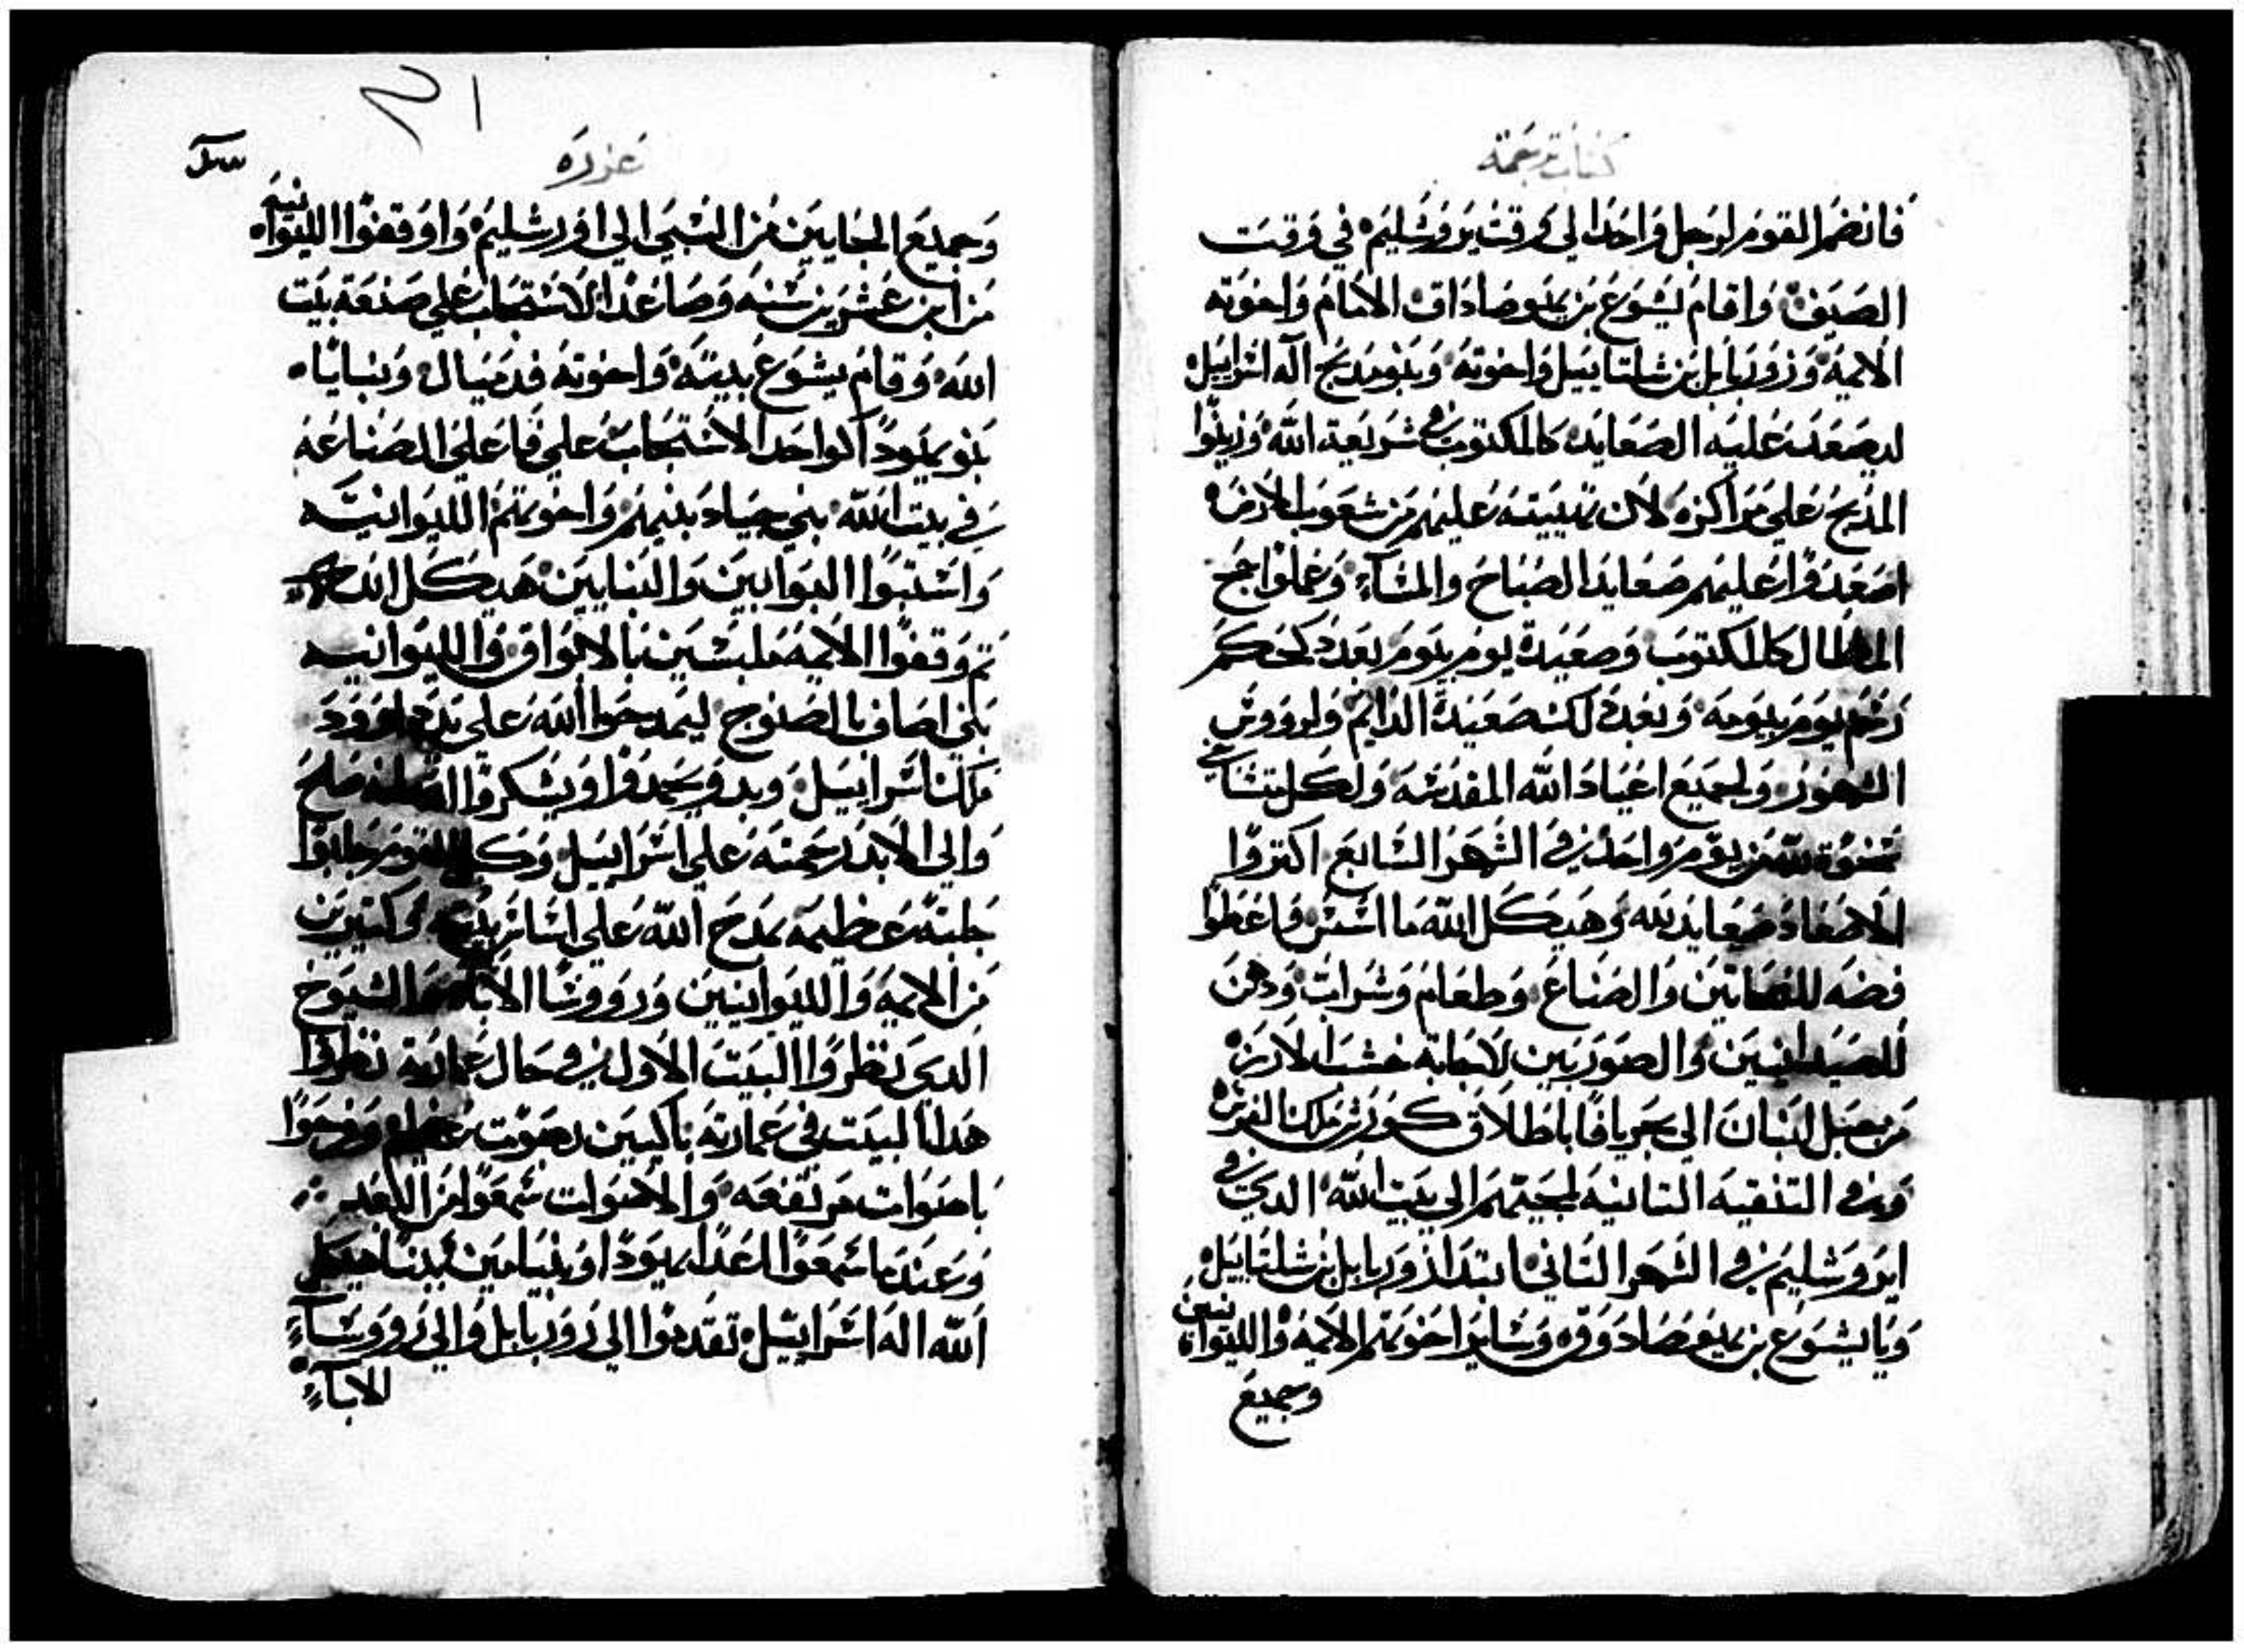 كتاب ترجمة
فانضم القوم لرجل واحد الي قرقت يروشليم في وقت
الصيف واقام يشوع بن يهوصاداق الامام واخوته
الايمه وزوربابل بن شلتاييل واخوته وبنو مدبح اله اسراييل
ليصعد عليه الصعايد كالمكتوب في شريعة الله وزينوا
المدبح علي مراكزه لان بهيبته عليهم من شعوب الارض
اصعدوا عليهم صعايد الصباح والمساء وعملوا حج
المطال كالمكتوب وصعيدة يوم بيوم بعدد كحكم
رسم يوم بيومه وبعد لك صعيدة الدايم ولرووش
الشهور ولجميع اعياد الله المقدسه ولكل متسناي
سنوة لله من يوم واحد في الشهر السابع اكتروا
الاصعاد صعايد لله وهيكل الله ما اسس فاعطوا
فضه للنحاتين والصناع وطعام وشراب ودهن
للصيدانيين والصوريين لاجابة خشب الارز
من جبل لبنان الي بحر يافا باطلاق كورش ملك الفرس
وفي التنقيه التانيه لمجيتهم الي بيت الله الدي في
ايروشليم في الشهر التاني ابتدا زوربابل بن شلتاييل
ويا يشوع بن يهوصادوق وساير اخوتهم الايمه والليوانيين
وجميع
عزره
وجميع الجايين من السبي الي اورشليم واوقفوا الليوانيه
من ابن عشرين سنه وصاعدا لاستجاب علي صنعة بيت
الله وقام يشوع بنيه واخوته قدميال وبنيايا
بنو يهودا كواحد الاستجاب علي فاعلي الصناعه
في بيت الله بني حيناد بنيهم واخوتهم الليوانيه
واستبوا البوابين والبنايين هيكل الله
تم وقفوا الايمه ملبسين بالابواق والليوانيه
بني اصاف بالصنوج ليمدحوا الله علي يد داوود
ملك اسراييل وبدو يحمدوا ويشكروا الله لانه صلح
والي الابد رحمته علي اسراييل وكل القوم جلبوا
جلبه عظيمه بمدح الله علي اساس بيت وكتيرين
من الايمه والليوانيين ورووسا الابا الشيوخ
الدي نظروا البيت الاول في حال عمارته نظروا
هدا البيت في عمارته باكيين بصوت عظيم وفرحوا
باصوات مرتفعه والاصوات سمعوا من البعد
وعندما سمعوا اعدا يهودا وبنيامين ببنا هيكل
الله اله اسراييل تقدموا الي زوربابل والي رووساء
الاباء